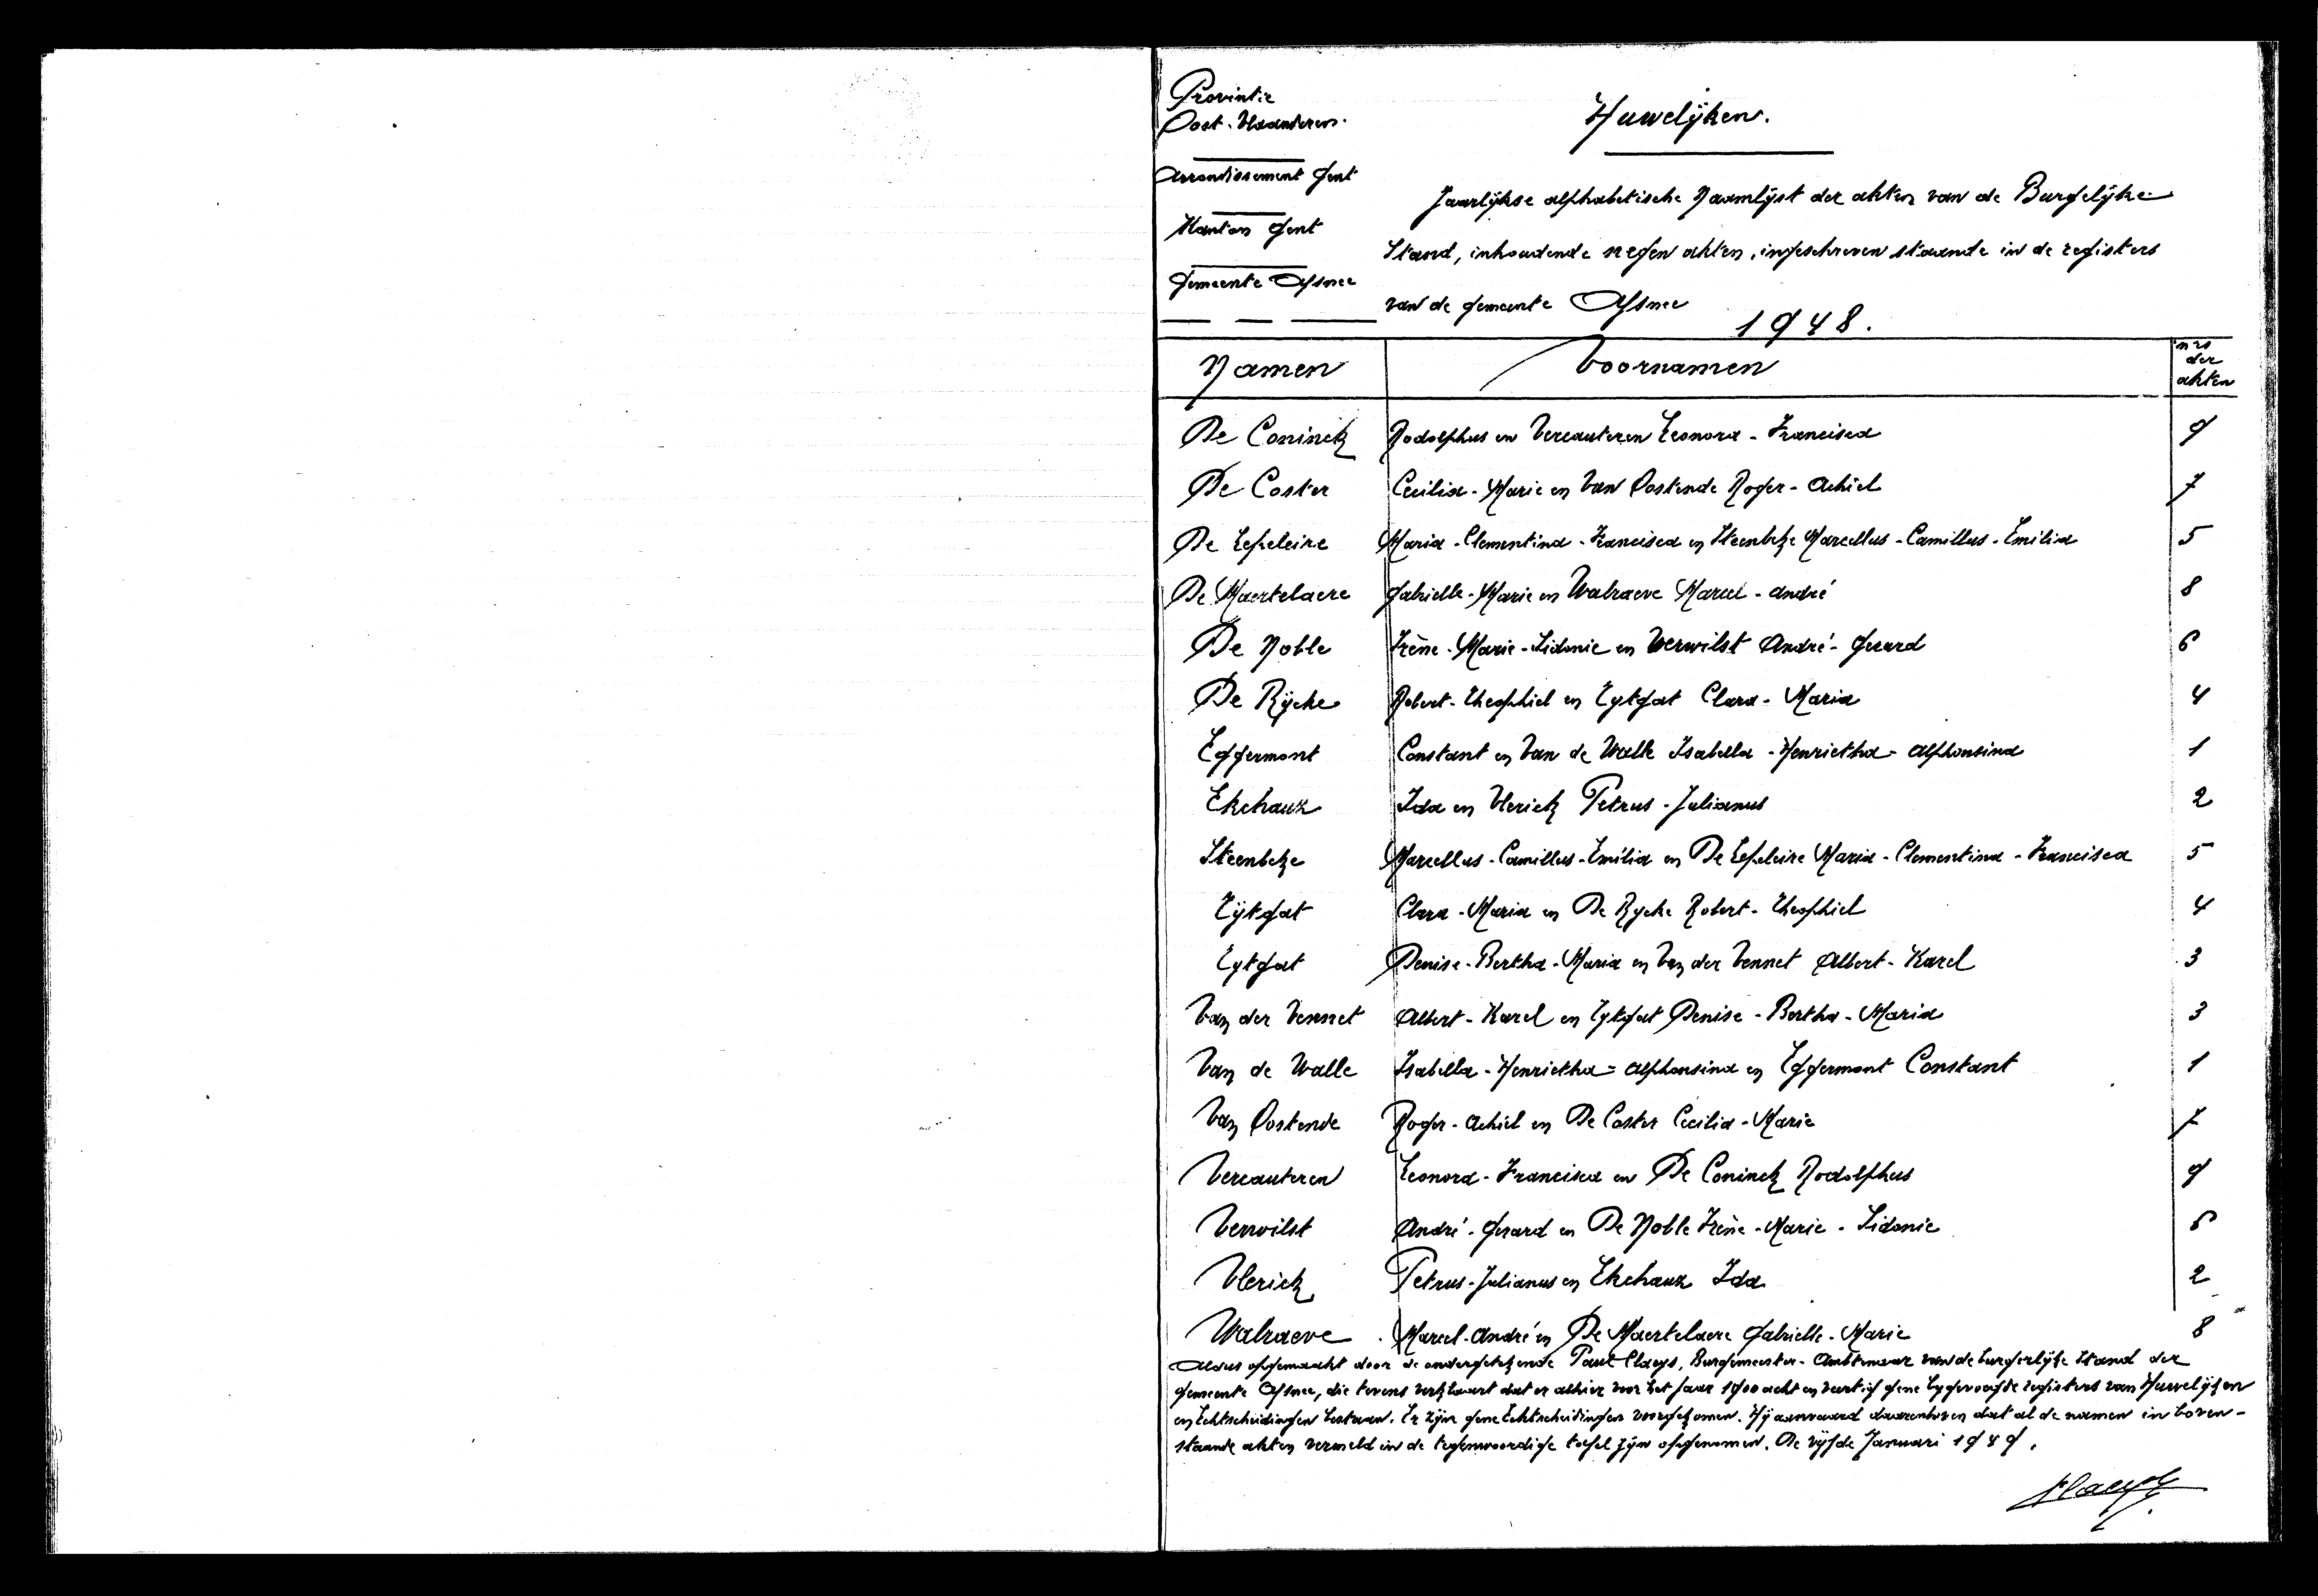 Provintie
Oost-Vlaanderen.
Arrondissement Gent
Kanton Gent
Gemeente Afsnee
Huwelijken.
Jaarlijkse alphabetische Naamlijst der akten van de Burgelijke
Stand, inhoudende negen akten, ingeschreven staande in de registers
van de gemeente Afsnee
1948.
Namen Voornamen nrs der akten
De Coninck Rodolphus en Vercauteren Leonora - Francisca 9
De Coster Cecilia - Marie en Van Oostende Roger - Achiel 7
De Lepeleire Maria - Clementina - Francisca en Steenbeke Marcellus - Camillus - Emilia 5
De Maertelaere Gabrielle - Marie en Walraeve Marcel - André 8
De Noble Irène - Marie - Sidonie en Verwilst André - Gerard 6
De Rycke Robert - Theophiel en Eytgat Clara - Maria 4
Eggermont Constant en Van de Walle Isabella - Henrietha - Alphonsina 1
Ekchaux Ida en Vlerick Petrus - Julianus 2
Steenbeke Marcellus - Camillus - Emilia en De Lepeleire Maria - Clementina - Francisca 5
Eytgat Clara - Maria en De Rycke Robert - Theophiel 4
Eytgat Denise - Bertha - Maria en Van der Vennet Albert - Karel 3
Van der Vennet Albert - Karel en Eytgat Denise - Bertha - Maria 3
Van de Walle Isabella - Henrietha = Alphonsina en Eggermont Constant 1
Van Oostende Roger - Achiel en De Coster Cecilia - Marie 7
Vercauteren Leonora - Francisca en De Coninck Rodolphus 9
Verwilst André - Gerard en De Noble Irène - Marie - Sidonie 6
Vlerick Petrus - Julianus en Ekchaux Ida 2
Walraeve Marcel - André en De Maertelaere Gabrielle - Marie 8
Aldus opgemaakt door de ondergetekende Paul Claeys, Burgemeester - Ambtenaar van de burgerlijke Stand der
gemeente Afsnee, die tevens verklaart dat er alhier voor het jaar 1900 acht en veertig gene bygevoegde registers van Huwelijken
en Echtscheidingen bestaan. Er zijn gene Echtscheidingen voorgekomen. Hij aanvaard daarenboven dat al de namen in boven-
staande akten vermeld in de tegenwoordige tafel zijn opgenomen. De vijfde Januari 1949.
Claeys